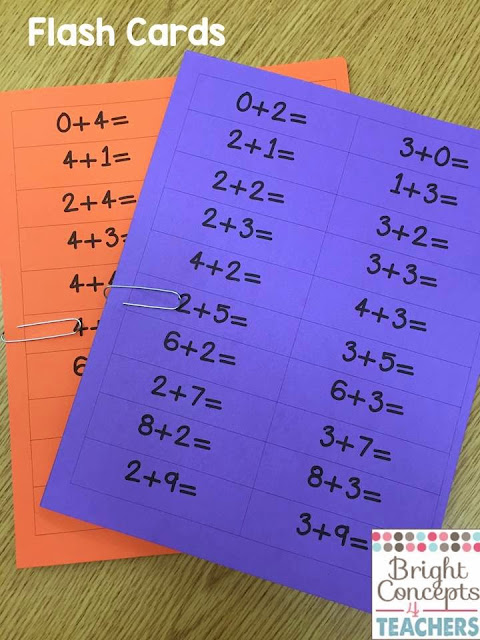 Flash Cards
0+4=
4+1=
2+4=
4+3=
4+
4+
6
0+2=
2+1=
2+2=
2+3=
4+2=
2+5=
6+2=
2+7=
8+2=
2+9=
3+0=
1+3=
3+2=
3+3=
4+3=
3+5=
6+3=
3+7=
8+3=
3+9=
Bright
Concepts
4
TEACHERS